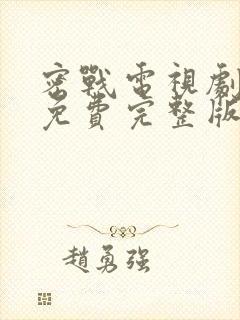 密戰電視劇
免費完整版
趙勇強